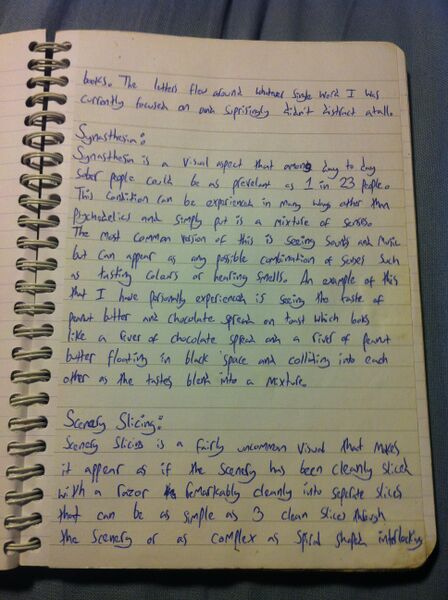 books. The letters flew around whatever single word I was
currently focused on and suprisingly didn't distract atall.
Synasthesia:
Synasthesia is a visual aspect that among day to day
sober people could be as prevelant as 1 in 23 people.
This condition can be experienced in many ways other than
Psychedelics and simply put is a mixture of senses.
The most common version of this is seeing sounds and music
but can appear as any possible combination of senses such
as tasting colours or hearing smells. An example of this
that I have personally experienced is seeing the taste of
peanut butter and chocolate spread on toast which looks
like a river of chocolate spread and a river of peanut
butter floating in black space and colliding into each
other as the tastes blend into a mixture.
Scenery Slicing:
Scenery Slicing is a fairly uncommon visual that makes
it appear as if the scenery has been cleanly sliced
with a razor remarkably cleanly into seperate slices
that can be as simple as 3 clean slices through
the scenery or as complex as spiral shaped interlocking